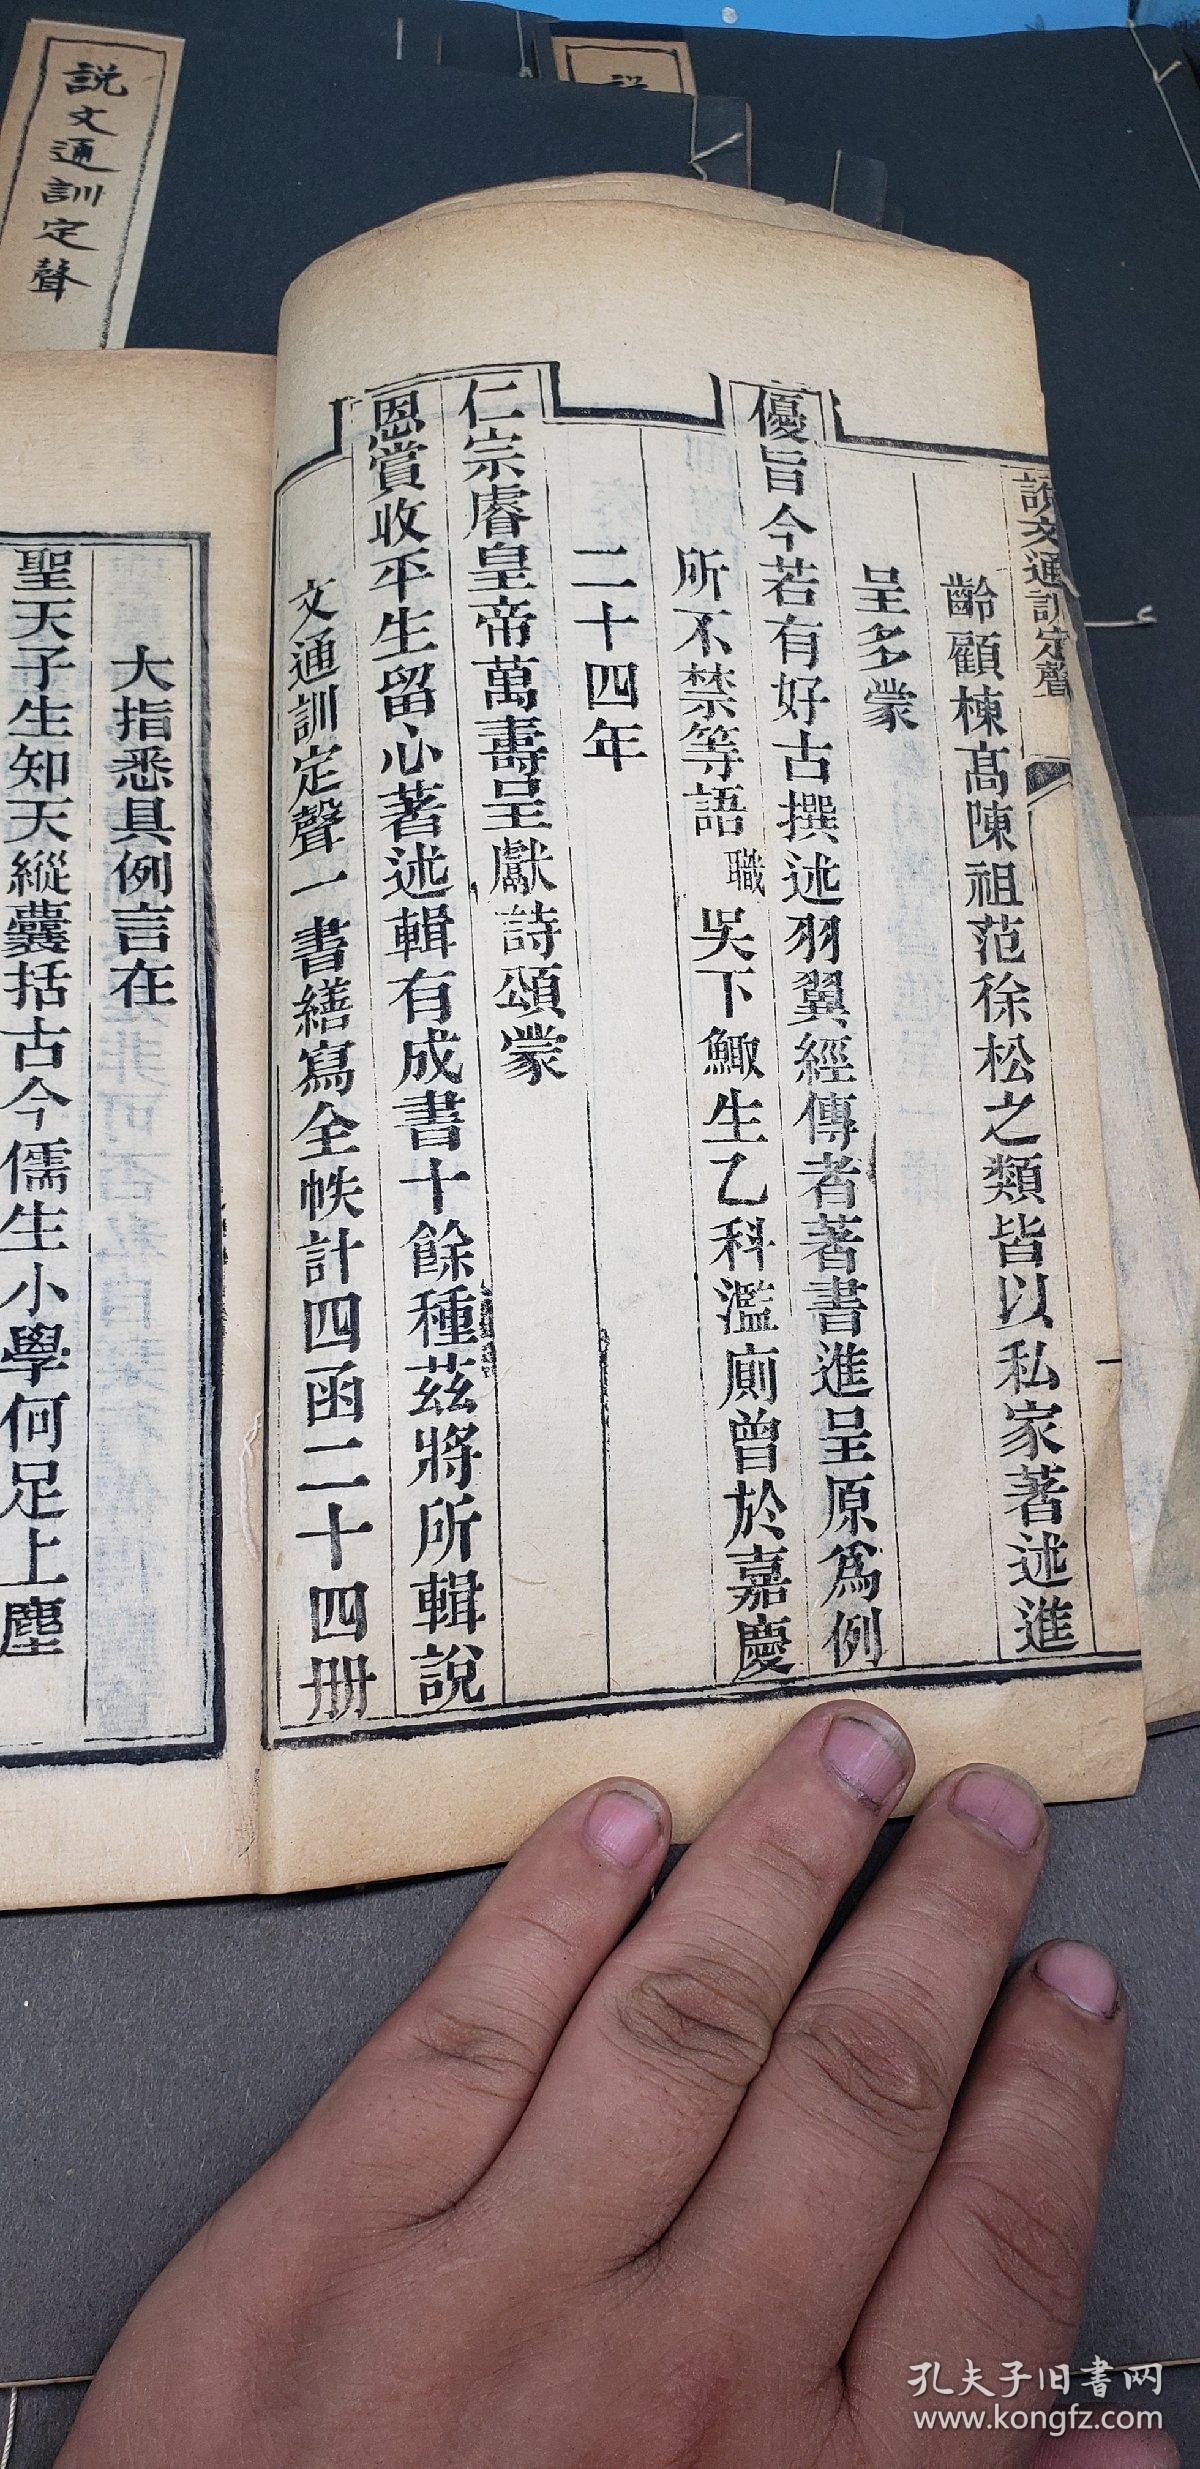 説文通訓定聲
説
説文通訓定聲
齡顧棟高陳祖范徐松之類皆以私家著述進
呈多蒙
優旨今若有好古撰述羽翼經傳者著書進呈原爲例
所不禁等語職吳下鯫生乙科濫廁曾於嘉慶
二十四年
仁宗睿皇帝萬壽呈獻詩頌蒙
恩賞收平生留心著述輯有成書十餘種茲將所輯說
文通訓定聲一書繕寫全帙計四函二十四册
大指悉具例言在
聖天子生知天縱囊括古今儒生小學何足上塵
孔夫子旧书网
www.kongfz.com